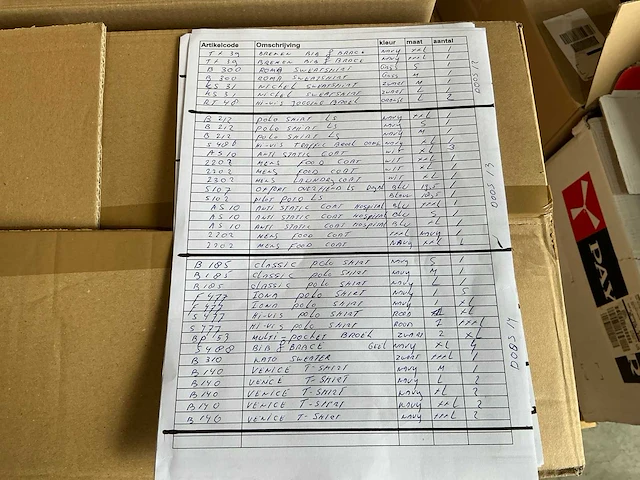 Artikelcode Omschrijving kleur maat aantal
TX 39 BREMEN BIB & BRACE NAVY XXL 1
TX 39 BREMEN BIB & BRACE NAVY 1
B 300 ROMA SWEATSHIRT S 1
B 300 ROMA SWEATSHIRT M 1
KS 31 NICKEL SWEATSHIRT ZWART M 1
KS 31 NICKEL SWEATSHIRT ZWART L 1
RT 48 HI-VIS JOGGING BROEK ORANGE L 2
DOOS 12
B 212 POLO SHIRT LS NAVY XXL 1
B 212 POLO SHIRT LS NAVY S 1
B 212 POLO SHIRT LS NAVY M 1
HI-VIS TRAFFIC BROEK NAVY XL 3
AS10 ANTI STATIC COAT WIT XL 1
2202 MENS FOOD COAT WIT XL 1
2202 MENS FOOD COAT WIT XL 1
2202 MENS COAT WIT XL 1
S107 BLU 1
S102 PILOT POLO LS 1
AS10 ANTI STATIC COAT HOSPITAL BLU 1
AS 10 ANTI STATIC COAT HOSPITAL BLU S 1
AS 10 ANTI STATIC COAT HOSPITAL BLU L 1
2202 MENS FOOD COAT NAVY 1
2202 MENS FOOD COAT NAVY XXL 1
DOOS 13
B 185 CLASSIC POLO SHIRT NAVY S 1
B 185 CLASSIC POLO SHIRT NAVY M 1
B 185 CLASSIC POLO SHIRT NAVY L 1
F 477 IONA POLO SHIRT NAVY 1 S
F 477 IONA POLO SHIRT NAVY 1 XL
S 477 HI-VIS POLO SHIRT ROOD XL
S 477 HI-VIS POLO SHIRT ROOD 2 XXL
MULTI-POCKET BROEK ZWART 2 XL
S 488 BIB & BRACE GEEL NAVY XL
B 310 KATO SWEATER ZWART XXL 1
B 140 VENICE T-SHIRT NAVY M 1
B 140 VENCE T-SHIRT NAVY L 2
B 140 VENICE T-SHIRT NAVY XL 2
B 140 VENICE T-SHIRT NAVY XXL 2
B 140 VENICE T-SHIRT NAVY XXL 2
DOOS 14
PAV